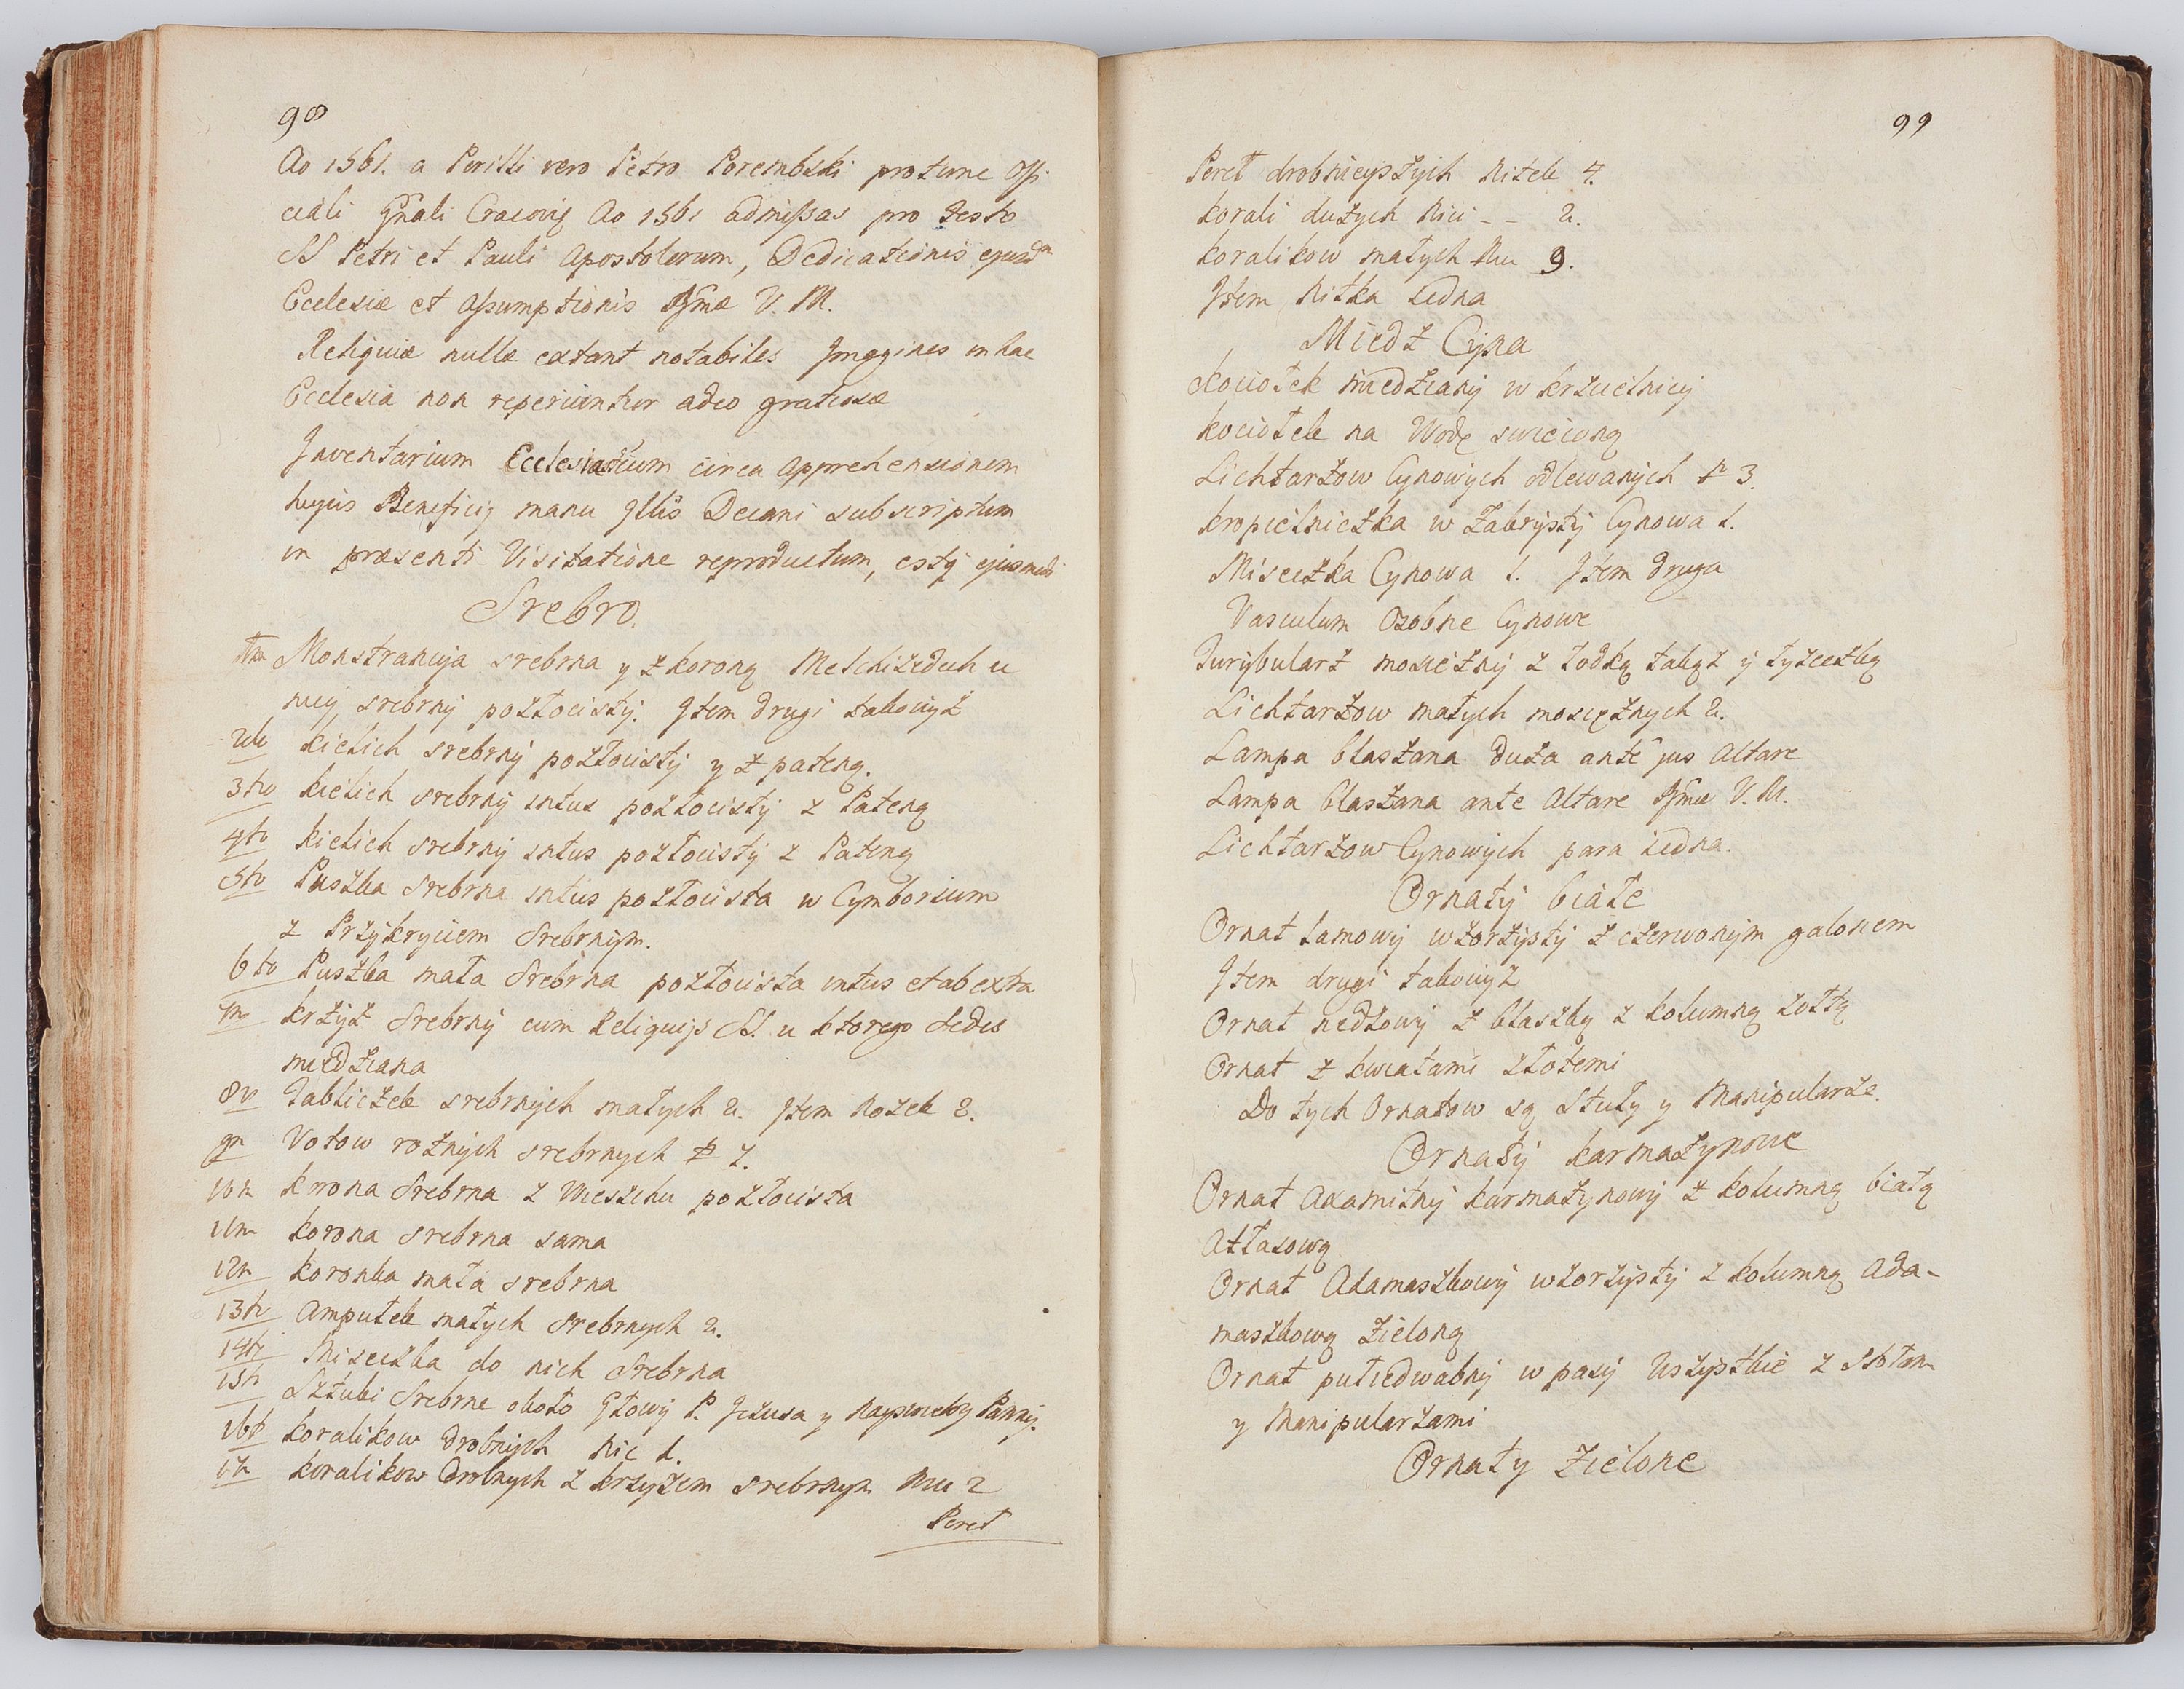 98
Ao 1561. a Perilli vero Petro Porembski protunc Offi
ciali Gnali Cracovię Ao 1561 admissas pro festo
SS Petri et Pauli Apostolorum, Dedicationis ejusdm
Ecclesiæ et Assumptionis Bmæ V. M.
Reliquiæ nullæ extant notabiles Imagines in hac
Ecclesia non reperiuntur adeo gratiosæ
Inventarium Ecclesiasticum circa Apprehensionem
hujus Beneficij manu Illis Decani subscriptum
in præsenti Visitatione reproductum, estq ejusmodi
Srebro.
1m Monstrancyja srebrna y z koroną Melchizedech u
niey srebrny pozłocisty. Item drugi takowyż
2do kielich srebrny pozłocisty y z pateną.
3tio kielich srebrny intus pozłocisty z Pateną
4to kielich srebrny intus pozłocisty z Pateną
5to Puszka Srebrna intus pozłocista w Cymborium
z Przykryciem Srebrnym.
6to Puszka mała Srebrna pozłocista intus et ab extra
7m krzyż Srebrny cum Reliquijs SS. u ktorego Sedes
miedziana
8vo Tabliczek srebrnych małych 2. Item Nozek 2.
9n Votow rożnych srebrnych N 7.
10m korona Srebrna z Wierzchu pozłocista
11m korona srebrna sama
12m koronka mała srebrna
13tio Ampułek małych Srebrnych 2.
14to Miseczka do nich Srebrna
15to Sztuki Srebrne około Głowy P. Jezusa y Nayswietszy Panny.
16to koralikow drobnych Nic 1.
17m koralikow drobnych z krzyżem srebrnym Nici 2
Pereł
99
Pereł drobnieyszych Nitek 4.
korali dużych Nici - - 2.
koralikow małych Nici 9.
Item Nitka Iedna
Miedz Cyna
kociołek miedziany w krzcielnicy
kociołek na Wodę swięconą
Lichtarzow Cynowych odlewanych N 3.
kropielniczka w Zakrysty Cynowa 1.
Miseczka Cynowa 1. Item druga
Vasculum Osobne Cynowe
Turybularz mosiężny z łodką takąż y łyżeczką
Lichtarzow małych mosiężnych 2.
Lampa blaszana Duża ante jus Altare
Lampa blaszana ante Altare Bmæ V. M.
Lichtarzow Cynowych para iedna.
Ornaty białe
Ornat lamowy wzorzysty z czerwonym galonem
Item drugi takowyż
Ornat nedzowy z blaszką z kolumną zołtą
Ornat z kwiatami złotemi
Do tych Ornatow są Stuły y Manipularze.
Ornaty karmazynowe
Ornat Axamitny karmazynowy z kolumną białą
Atłasową
Ornat Adamaszkowy wzorzysty z kolumną Ada-
maszkową Zieloną
Ornat pułiedwabny w pasy Wszystkie z Stułami
y Manipularzami
Ornaty Zielone